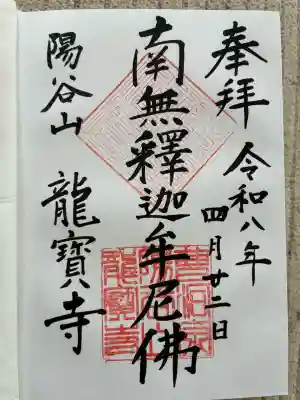 奉拝 令和八年
四月廿二日
南無釋迦牟尼佛
陽谷山 龍寶寺